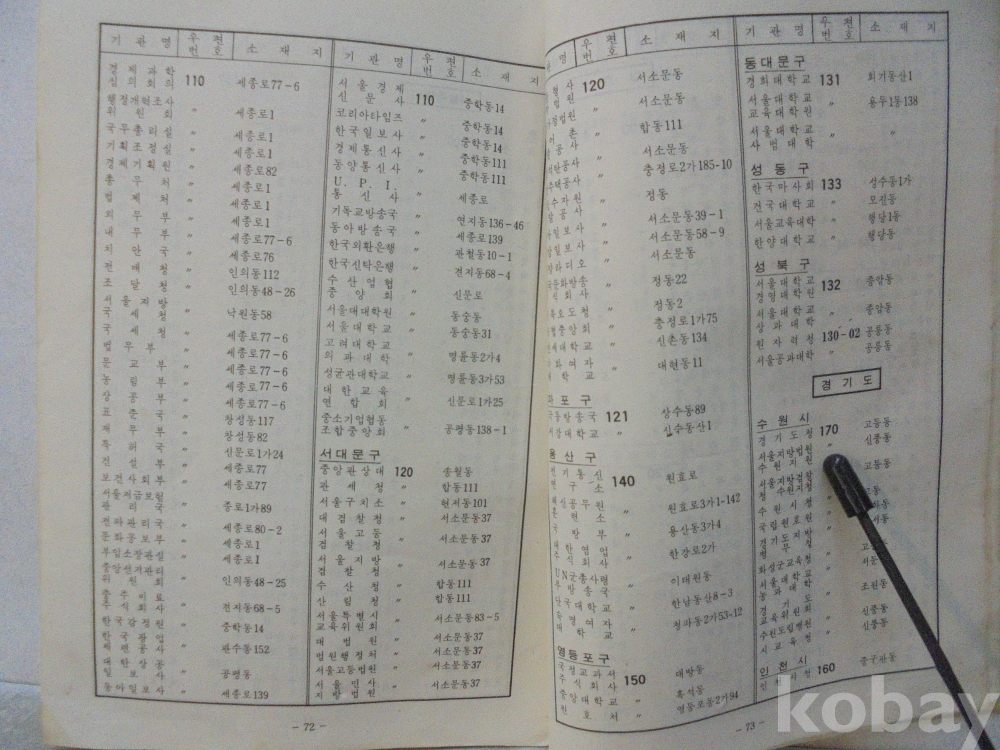 기관명 우편번호 소재지 기관명 우편번호 소재지
경제과학
심의회의 110 세종로77-6
행정개혁조사
위원회 〃 세종로1
국무총리실 〃 세종로1
기획조정실 〃 세종로1
경제기획원 〃 세종로82
총무처 〃 세종로1
법제처 〃 세종로1
외무부 〃 세종로1
내무부 〃 세종로77-6
치안국 〃 세종로76
전매청 〃 인의동112
조달청 〃 인의동48-26
서울지방
국세청 〃 낙원동58
국세청 〃 세종로77-6
법무부 〃 세종로77-6
문교부 〃 세종로77-6
농림부 〃 세종로77-6
상공부 〃 세종로77-6
표준국 〃 창성동117
재무부 〃 창성동82
특허국 〃 신문로1가24
건설부 〃 세종로77
보건사회부 〃 세종로77
서울저금보험
관리국 〃 종로1가89
전파관리국 〃 세종로80-2
문화공보부 〃 세종로1
부임소장관실 〃 세종로1
중앙선거관리
위원회 〃 인의동48-25
충주비료
주식회사 〃 견지동68-5
한국감정원 〃 중학동14
한국광업
제련공사 〃 관수동152
대한상공
일보사 〃 공평동
동아일보사 〃 세종로139
서울경제
신문사 110 중학동14
코리아타임즈 〃 중학동14
한국일보사 〃 중학동14
경제통신사 〃 중학동111
동양통신사 〃 중학동111
U.P.I.
통신사 〃 세종로
기독교방송국 〃 연지동136-46
동아방송국 〃 세종로139
한국외환은행 〃 관철동10-1
한국신탁은행 〃 견지동68-4
수산업협
중앙회 〃 신문로
서울대대학원 〃 동숭동
서울대학교 〃 동숭동31
고려대학교
의과대학 〃 명륜동2가4
성균관대학교 〃 명륜동3가53
대한교육
연합회 〃 신문로1가25
중소기업협동
조합중앙회 〃 공평동138-1
서대문구
중앙관상대 120 송월동
관세청 〃 합동111
서울구치소 〃 현저동101
대검찰청 〃 서소문동37
서울고등
검찰청 〃 서소문동37
서울지방
검찰청 〃 서소문동37
수산청 〃 합동111
산림청 〃 합동111
서울특별시
교육위원회 〃 서소문동83-5
대법원 〃 서소문동37
법원행정처 〃 서소문동37
서울고등법원 〃 서소문동37
서울민사
지방법원 〃 서소문동37
- 72 -
관명 우편번호 소재지 기관명 우편번호 소재지
형사
법원 120 서소문동
가정법원 〃 서소문동
합동111
공사 〃 서소문동
석탄공사 〃 충정로2가185-10
주택공사
수자원 〃 정동
발공사 〃 서소문동39-1
일보사 〃 서소문동58-9
일보사 〃 서소문동
라디오
문화방송
식회사 〃 정동22
정동2
중앙회 〃 충정로1가75
세대학교 〃 신촌동134
화여자
대학교 〃 대현동11
마포구
극동방송국 121 상수동89
서강대학교 〃 신수동산1
용산구
전기통신
연구소 140 원효로
원효로3가1-142
국방부 〃 용산동3가4
대한염업
주식회사 〃 한강로2가
UN군총사령
부방송국 〃 이태원동
단국대학교 〃 한남동산8-3
숙명여자
대학교 〃 청파동2가53-12
영등포구
국정교과서
주식회사 150 대방동
중앙대학교 〃 흑석동
원호처 〃 영등포동2가94
- 73 -
동대문구
경희대학교 131 회기동산1
서울대학교
교육대학원 〃 용두1동138
서울대학교
사범대학 〃 〃
성동구
한국마사회 133 성수동1가
건국대학교 〃 모진동
서울교육대학 〃 행당1동
한양대학교 〃 행당동
성북구
서울대학교
경영대학원 132 종암동
서울대학교
상과대학 〃 종암동
원자력청 130-02 공릉동
서울공과대학 〃 공릉동
경기도
수원시
경기도청 170 고등동
서울지방법원
수원지원 신풍동
서울지방검찰
청수원지청 고등동
수원시청
국립원호원
화성군교육청
서울대학교
농과대학
경기도
교육위원회 〃 조원동
수원도립병원 〃 신풍동
시교육청 〃 신풍동
인천시
160 중구관동
kobay